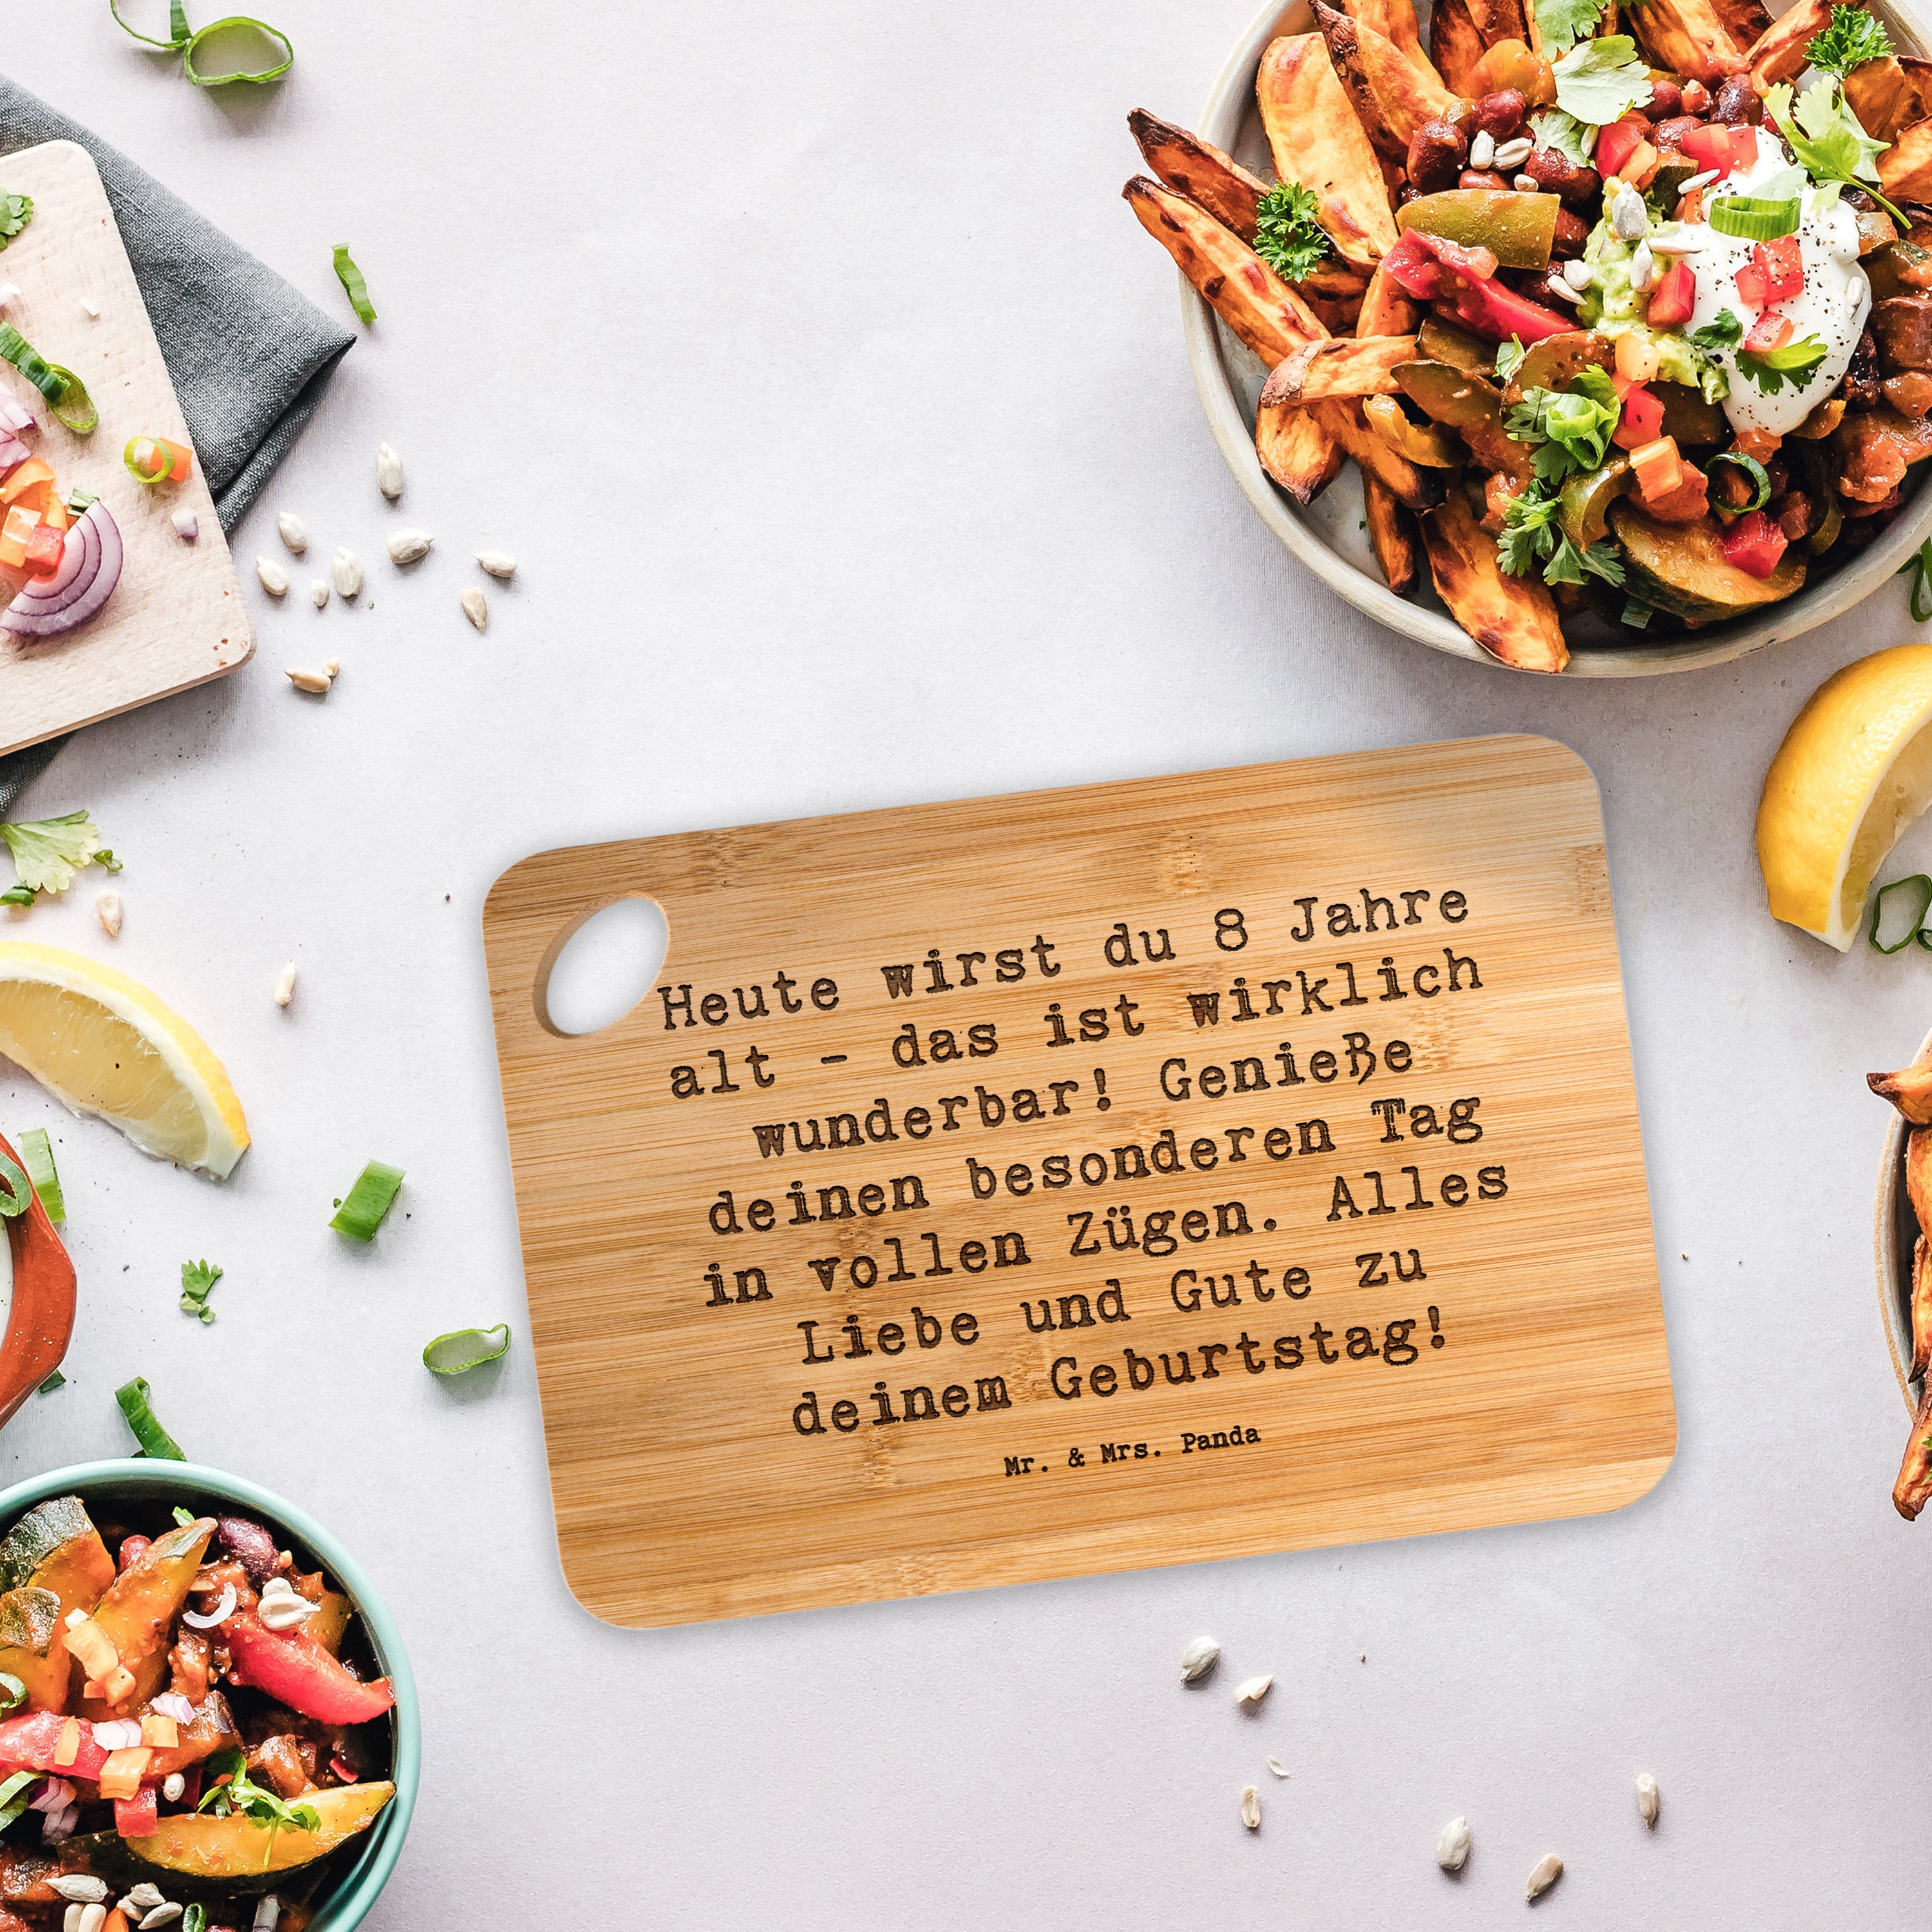 Heute wirst du 8 Jahre
alt - das ist wirklich
wunderbar! Genieße
deinen besonderen Tag
in vollen Zügen. Alles
Liebe und Gute zu
deinem Geburtstag!
Mr. & Mrs. Panda